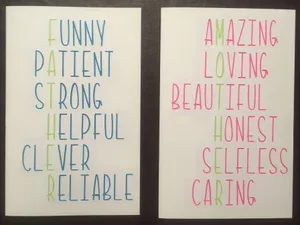 FUNNY
PATIENT
STRONG
HELPFUL
CLEVER
RELIABLE
AMAZING
LOVING
BEAUTIFUL
HONEST
SELFLESS
CARING